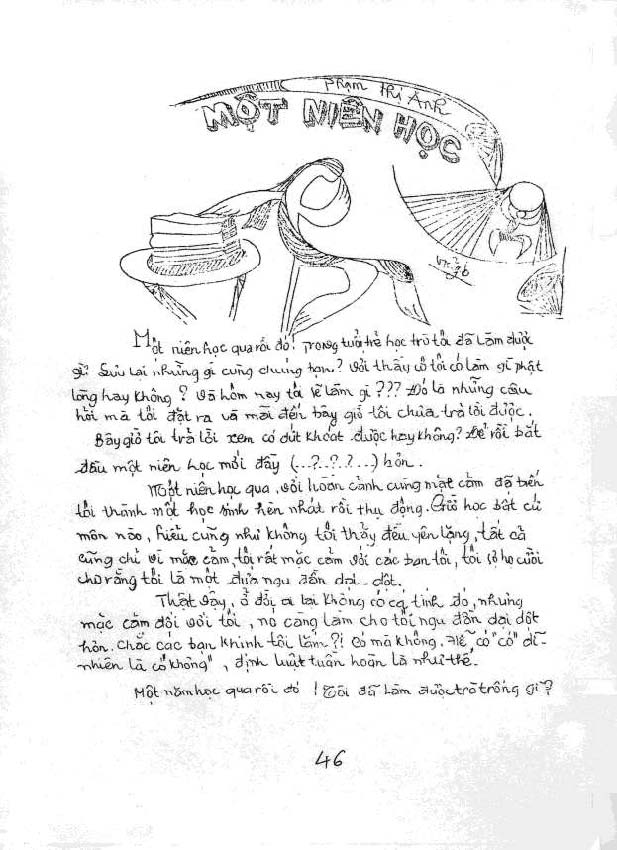 Phạm Thị Anh
MỘT NIÊN HỌC
Một niên học qua rồi đó! Trong tuổi trẻ học trò tôi đã làm được
gì? Lưu lại những gì cùng chúng bạn? Với thầy cô tôi có làm gì phật
lòng hay không? Và hôm nay tôi sẽ làm gì??? Đó là những câu
hỏi mà tôi đặt ra và mãi đến bây giờ tôi chưa trả lời được.
Bây giờ tôi trả lời xem có dứt khoát được hay không? Để rồi bắt
đầu một niên học mới đầy (...?..?.?...) hơn.
Một niên học qua, với hoàn cảnh cùng mặc cảm đã biến
tôi thành một học sinh hèn nhát rồi thụ động. Giờ học bất cứ
môn nào, hiểu cũng như không tôi thấy đều yên lặng, tất cả
cũng chỉ vì mặc cảm, tôi rất mặc cảm với các bạn tôi, tôi sợ họ cười
cho rằng tôi là một đứa ngu đần dại dột.
Thật vậy, ở đời ai lại không có cá tính đó, nhưng
mặc cảm đối với tôi, nó càng làm cho tôi ngu đần dại dột
hơn. Chắc các bạn khinh tôi lắm?! Có mà không. Hễ có "có" dĩ
nhiên là có "không", định luật tuần hoàn là như thế.
Một năm học qua rồi đó! Tôi đã làm được trò trống gì?
46